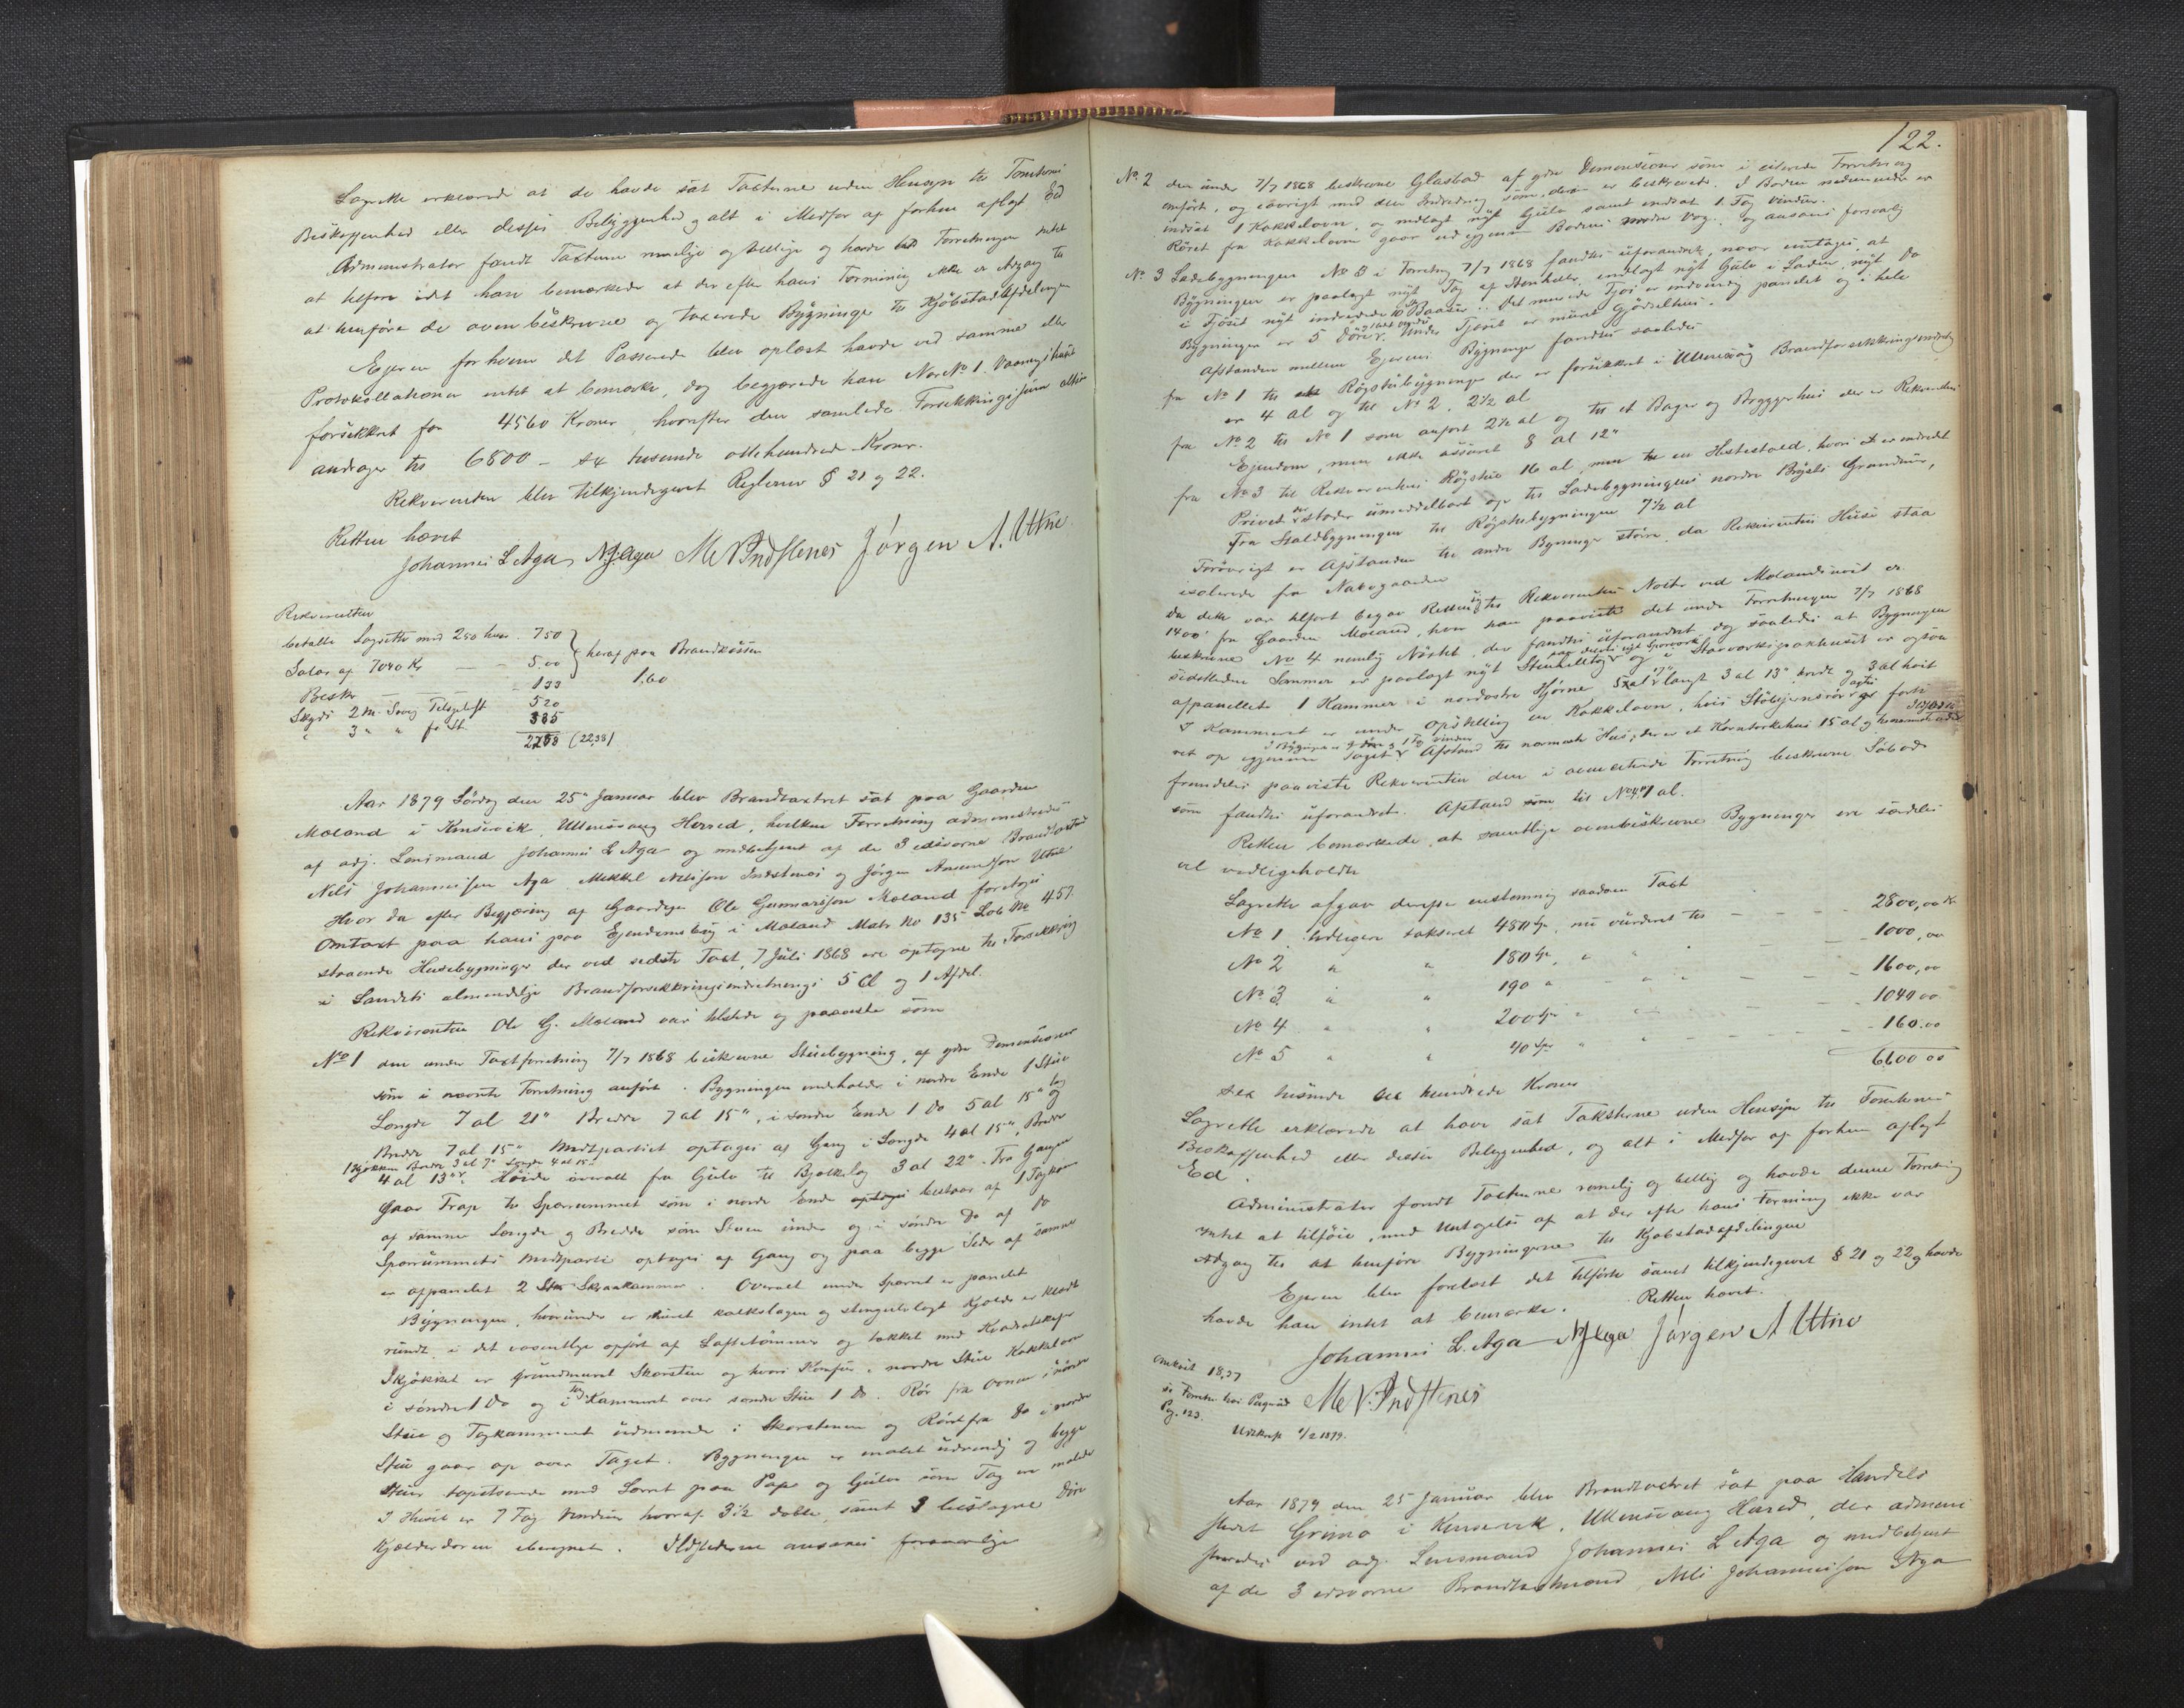 Lagrette erklærede at de havde sat Taxterne uden Hensyn til Tomtens
Beskaffenhed eller desses Beliggenhed og alt i Medfør af forhen aflagt Ed
Administrator fandt Taxterne rimelige og billige og havde ved Forretningen intet
at tilføre idet han bemærkede at der efter hans Formening ikke er Adgang til
at henføre de ovenbeskrevne og taxerede Bygninger til Kjøbstadafdelingen
Ejeren for hvem det Passerede blev oplæst havde ved samme eller
Protokollationen intet at bemærke, dog begjærede han No 1. Vaaningshuset
forsikkret for 4560 Kroner, hvorefter den samlede Forsikkringssum altsaa
andrager til 6800 - sex tusende ottehundrede Kroner.
Rekvirenten blev tilkjendegivet Reglerne § 21 og 22.
Retten hævet
Johannes L Aga NJAga M N Indstenes Jørgen A. Utne
Rekvirenten
betalte Lagrette med 250 hver. 750
Salær af 7040 Kr — 5.00 heraf paa Brandkassen
Beskr — 133 1,60
Skyds 2 M. Søvej 520
" 3 " " 385
2288 (22,38)
Aar 1879 Lørdag den 25de Januar blev Brandtaxtret sat paa Gaarden
Moland i Kinservik, Ullensvang Herred, hvilken Forretning administreredes
af adj. Lensmand Johannes L Aga og medbetjent af de 3 edsvorne Brandtaxtmænd
Nils Johannessen Aga Mikkel Nilsson Indstenes og Jørgen Amundsson Utne
Hvor da efter Begjæring af Gaardejer Ole Gunnarsson Moland foretoges
Omtaxt paa hans paa Ejendomsbrug i Moland Matr No 135 Løb No 457
staaende Husebygninger der ved sidste Taxt, 7 Juli 1868 ere optagne til Forsikkring
i Landets almindelige Brandforsikkringsindretnings 5 Cl og 1 Afdel.
Rekvirenten Ole G. Moland var tilstede og paaviste som
No 1 den under Taxtforretning 7/7 1868 beskrevne Stuebygning, af ydre Demensioner
som i nævnte Forretning anført. Bygningen indeholder i nordre Ende 1 Stue
Længde 7 al 21" Bredde 7 al 15", i søndre Ende 1 Do 5 al 15" lang
Bredde 7 al 15" Midtpartiet optages af Gang i Længde 4 al 15", Bredde
1 Kjøkken Bredde 3 al 7" Længde 4 al 15"
4 al 13". Høide overalt fra Gulv til Bjælkelag 3 al 22". Fra Gangen
gaar Trap til Sparrummet som i nordre Ende optages bestaar af 1 Tagkam
af samme Længde og Bredde som Stuen under og i søndre Do af Do
Sparrummets Midtparti optages af Gang og paa begge Sider af samme
er afpanelet 2 Skraakammer. Overalt under Sparret er panelet
Bygningen, hvorunder er muret kalkslagen og stengulvlagt Kjelder er klædt
rundt, i det væsentlige opført af Laftetømmer og tækket med
I Kjøkket er grundmuret Skorsten og hvori Komfur. nordre Stue Kakkelovn
i søndre 1 Do og i Tagkammeret over søndre Stue 1 Do. Rør fra Ovnen i søndre
Stue og Tagkammeret udmunde i Skorstenen og Røret fra Do i nordre
Stue gaar op over Taget. Bygningen er malet udvendig og begge
Stuer tapetserede med Lærret paa Pap og Gulve som Tag ere malede
I Huset er 7 Fag Vinduer hvoraf 3½ doble, samt 9 beslagne Døre
Kjælderdøren iberegnet. Ildstederne ansaaes forsvarlige
122.
No. 2 den under 7/7 1868 beskrevne Glasbod af ydre Demensioner som i citerede Forretning
anført, og iøvrigt med den Indredning som der er beskrevet. I Boden nedenunder er
indsat 1 Kakkelovn, og indlagt nyt Gulv samt indsat 1 Fag Vindue.
Røret fra Kakkelovn gaar ud gjennem Bodens nordre Væg. og ansaaes forsvarlig
No. 3 Ladebygningen No 3 i Forretning 7/7 1868 fandtes uforandret, naar undtages at
Bygningen er paalagt nyt Tag af Stenheller, indlagt nyt Gulv i Laden, nyt Do
i Fjøset nyt indredede 10 Baase. Det murede Fjøs er indvendig panelet og i hele
Bygningen er 5 Døre. Under Fjøset er muret Gjødselhus.
Afstanden mellem Ejerens Bygninger fandtes saaledes
fra No 1 til Røgstuebygningen der er forsikkret i Ullensvang Brandforsikkringsindretn
er 4 al og til No 2, 2½ al
fra No 2 til No 1 som anført 2½ al og til et Bager og Bryggerhus der er Rekvirentens
Ejendom, men ikke assureret 8 al 12"
fra No 3 til Rekvirentens Røgstue 16 al, men til en Hestestald, hvori er indredet
Privet der støder umiddelbart op til Ladebygningens nordre Grundmur,
Fra Staldbygningen til Røgstuebygningen 7½ al
Forøvrigt er Afstanden til andre Bygninger større, da Rekvirentens Huse staa
isolerede fra Nabogaarden
Da dette var tilført begav Retten sig til Rekvirentens Nøst ved Molandsnæs
1400' fra Gaarden Moland, hvor han paaviste det under Forretningen 7/7 1868
beskrevne No 4 nemlig Nøstet, der fandtes uforandret dog saaledes at Bygningen
sidstleden Sommer er paalagt nyt Stenhelletag og i er ogsaa
afpanellet 1 Kammer i nordøstre Hjørne 5 al 17" langt 3 al 13" bredt og 3 al høit
I Kammeret er under Opstilling en Kakkelovn, hvis Støbejernsrør er ført
ret op igjennem Taget. Afstand til nærmeste Hus, der er et Korntørkehus 15 al
fremdeles paaviste Rekvirenten den i ovenciterede Forretning beskrevne Søbod
som fandtes uforandret. Afstand til No 4 1 al.
Retten bemærkede, at samtlige ovenbeskrevne Bygninger ere særdeles
vel vedligeholdte
Lagrette afgav derefter enstemmig saadan Taxt
No 1 tidligere takseret 480 Sp, nu vurderet til — 2800,00 Kr
No 2 " " 180 Sp, " " — 1000,00
No 3 " " 190 " " — 1600,00
No 4 " " 200 Sp " — 1040 00
No 5 " " 40 Sp " — 160.00
6600 00
sex tusinde sex hundrede Kroner
Lagrette erklærede at have sat Taksterne uden Hensyn til Tomternes
Beskaffenhed eller disses Beliggenhed, og alt i Medfør af forhen aflagt
Ed.
Administrator fandt Taxterne rimelig og billig og havde denne Forretning
intet at tilføie, med Undtagelse af at der efter hans Formening ikke var
Adgang til at henføre Bygningerne til Kjøbstadafdelingen
Ejeren blev forelæst det tilførte samt tilkjendegivet § 21 og 22 og havde
havde han intet at bemærke. Retten hævet.
Johannes L. Aga NJAga Jørgen A Utne
M N. Indstenes
Omkost 18,37
se Forretn hos
Pag. 123.
Udskrift 1/2 1879.
Aar 1879 den 25 Januar blev Brandtaxtret sat paa Handels
stedet Grimo i Kinservik, Ullensvang Herred, der admini
streredes ved adj. Lensmand Johannes L Aga og medbetjent
af de 3 edsvorne Brandtaxtmænd, Nils Johannessen Aga